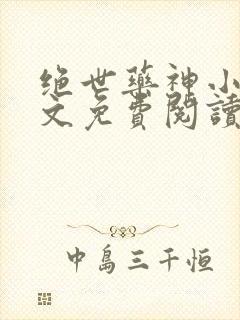 绝世藥神小
文免費閱讀
中島三千恒